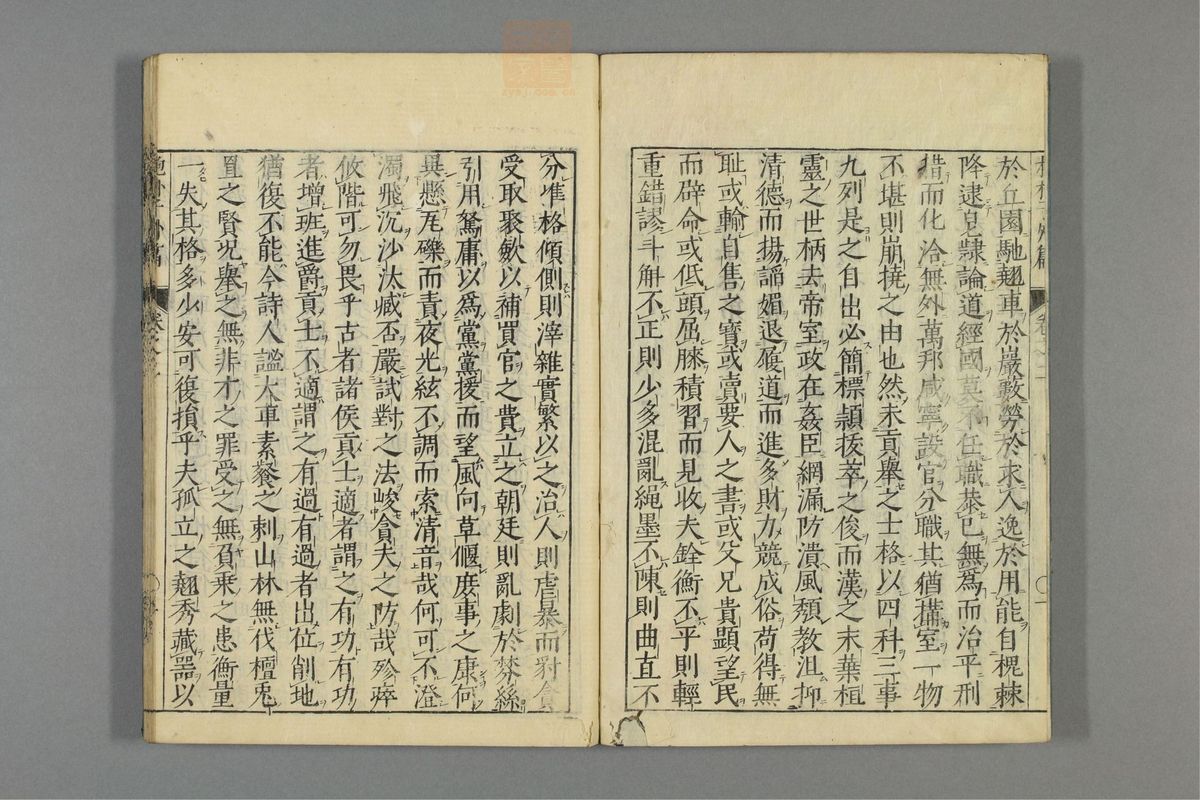 於丘園馳翹車於巖藪勞於求人逸於用能自槐棘
降逮皂隸論道經國莫不任職恭己無爲而治平刑
措而化洽無外萬邦咸寧設官分職其猶搆室一物
不堪則崩撓之由也然未貢舉之士格以四科三事
九列是之自出必簡標頴拔萃之俊而漢之末葉桓
靈之世柄去帝室政在姦臣網漏防潰風頹教沮抑
清德而揚謟媚退履道而進多財力競成俗苟得無
耻或輸自售之寶或賣要人之書或父兄貴顯望民
而辟命或低頭屈膝積習而見收夫銓衡不平則輕
重錯謬斗斛不正則少多混亂繩墨不陳則曲直不
分准格傾側則滓雜實繁以之治人則虐暴而對貪
受取聚斂以補買官之費立之朝廷則亂劇於棼絲
引用駑庸以爲黨黨援而望風向草偃庶事之康何
異懸瓦礫而責夜光絃不調而索清音哉何可不澄
濁飛沉沙汰臧否嚴試對之法峻貪夫之防哉殄瘁
攸階可勿畏乎古者諸侯貢士適者謂之有功有功
者增班進爵貢士不適謂之有過有過者出位削地
猶復不能令詩人謐大車素餐之刺山林無伐檀兎
罝之賢况舉之無非才之罪受之無負乘之患衡量
一失其格多少安可復損乎夫孤立之翹秀藏器以